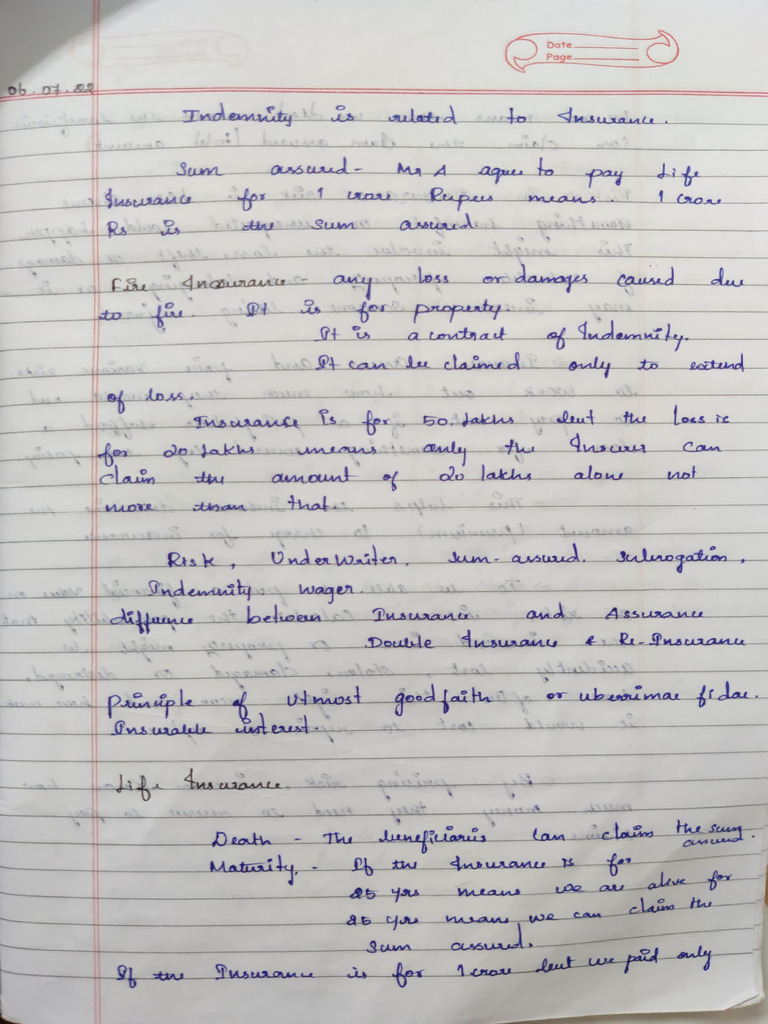 Date
Page
06.07.22
Indemnity is related to Insurance.
Sum assured - Mr A agree to pay Life
Insurance for 1 crore Rupees means. 1 crore
Rs is the sum assured.
Fire Insurance - any loss or damages caused due
to fire. It is for property
It is a contract of Indemnity.
It can be claimed only to extend
of loss.
Insurance is for 50 Lakhs but the loss is
for 20 Lakhs means only the Insurer can
claim the amount of 20 lakhs alone not
more than that.
Risk, UnderWriter, sum-assured. subrogation,
Indemnity wager.
difference between Insurance and Assurance
Double Insurance & Re-Insurance
principle of utmost goodfaith or uberrimae fidae.
Insurable interest.
Life Insurance.
Death - The beneficiaries can claim the sum
assured.
Maturity. - If the Insurance is for
25 yrs means we are alive for
25 yrs means we can claim the
sum assured.
If the Insurance is for 1 crore but we paid only